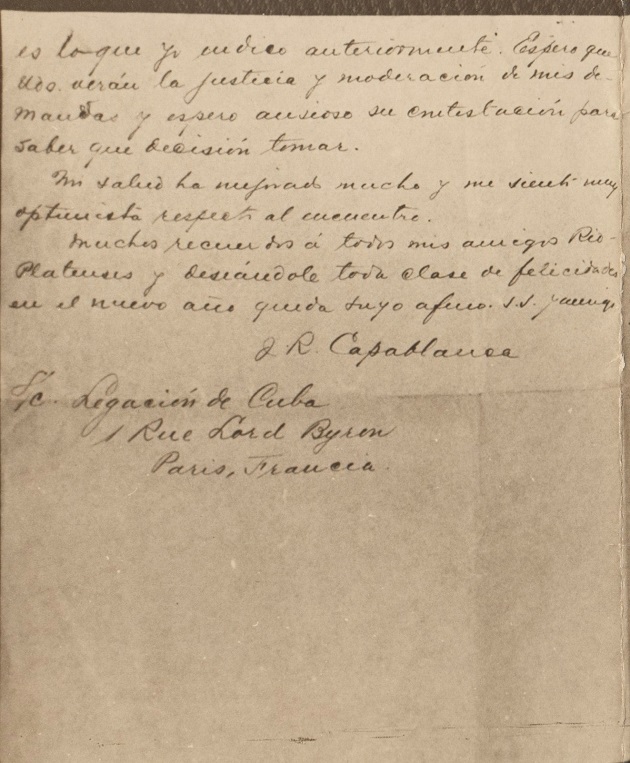 es lo que yo indico anteriormente. Espero que
Uds. verán la justicia y moderación de mis de-
mandas y espero ansioso su contestación para
saber que decisión tomar.
Mi salud ha mejorado mucho y me siento muy
optimista respecto al encuentro.
Muchos recuerdos á todos mis amigos Rio-
Platenses y deseándole toda clase de felicidades
en el nuevo año queda suyo afmo. S.S. y amigo
J. R. Capablanca
S/c. Legación de Cuba
1 Rue Lord Byron
Paris, Francia.